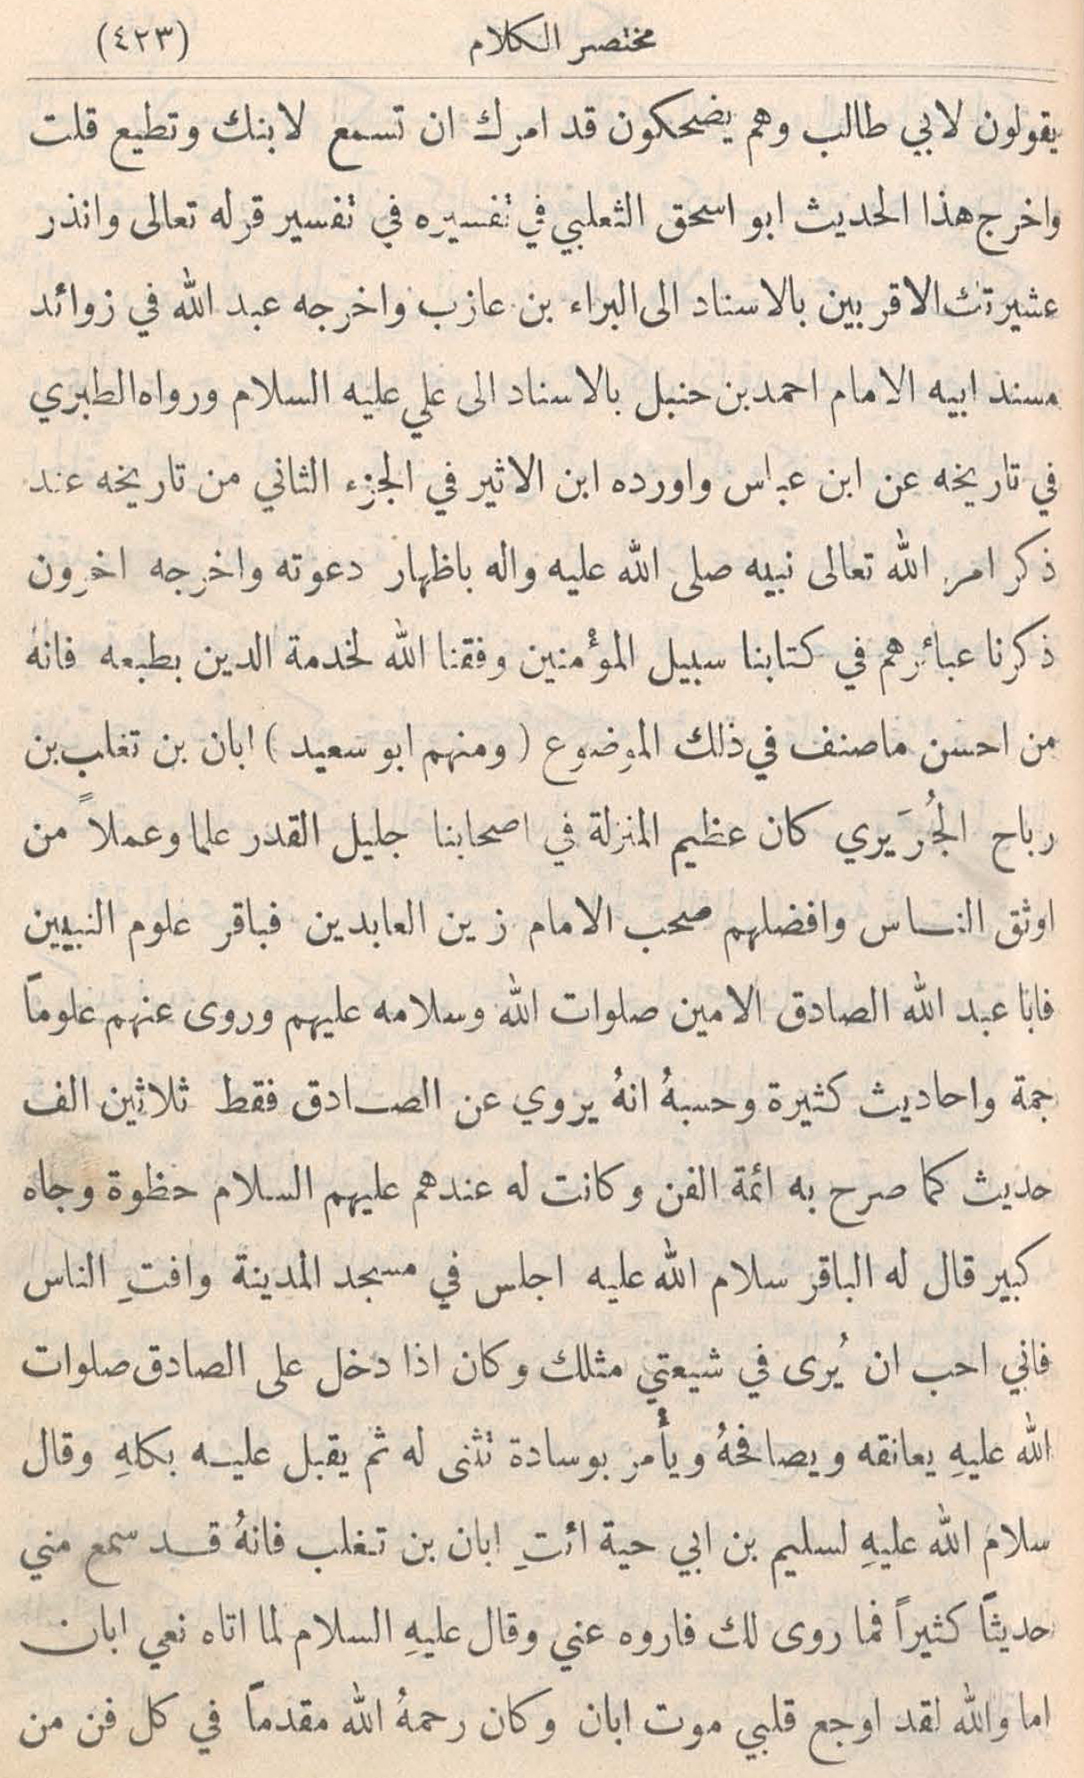 مختصر الكلام (٤٢٣)
يقولون لابي طالب وهم يضحكون قد امرك ان تسمع لابنك وتطيع قلت
واخرج هذا الحديث ابو اسحق الثعلبي في تفسيره في تفسير قوله تعالى وانذر
عشيرتك الاقربين بالاسناد الى البراء بن عازب واخرجه عبد الله في زوائد
مسند ابيه الامام احمد بن حنبل بالاسناد الى علي عليه السلام ورواه الطبري
في تاريخه عن ابن عباس واورده ابن الاثير في الجزء الثاني من تاريخه عند
ذكر امر الله تعالى نبيه صلى الله عليه واله باظهار دعوته واخرجه اخرون
ذكرنا عبائرهم في كتابنا سبيل المؤمنين وفقنا الله لخدمة الدين بطبعه فانهُ
من احسن ما صنف في ذلك الموضوع ( ومنهم ابو سعيد ) ابان بن تغلب بن
رباح الجُرَيري كان عظيم المنزلة في اصحابنا جليل القدر علما وعملاً من
اوثق النـاس وافضلهم صحب الامام زين العابدين فباقر علوم النبيين
فابا عبد الله الصادق الامين صلوات الله وسلامه عليهم وروى عنهم علوماً
جمة واحاديث كثيرة وحسبهُ انهُ يروي عن الصـادق فقط ثلاثين الف
حديث كما صرح به ائمة الفن وكانت له عندهم عليهم السلام حظوة وجاه
كبير قال له الباقر سلام الله عليه اجلس في مسجد المدينة وافتِ الناس
فاني احب ان يُرى في شيعتي مثلك وكان اذا دخل على الصادق صلوات
الله عليهِ يعانقه ويصافحهُ ويأمر بوسادة تثنى له ثم يقبل عليـه بكلهِ وقال
سلام الله عليهِ لسليم بن ابي حية ائتِ ابان بن تغلب فانهُ قـد سمع مني
حديثاً كثيراً فما روى لك فاروه عني وقال عليهِ السلام لما اتاه نعي ابان
اما والله لقد اوجع قلبي موت ابان وكان رحمهُ الله مقدماً في كل فن من